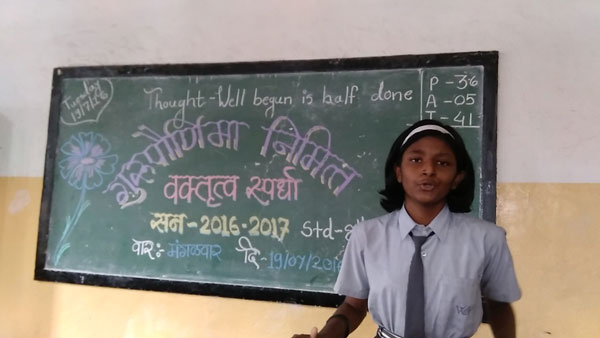 Tuesday
19/7/16
Thought - Well begun is half done
P - 36
A - 05
T - 41
गुरुपौर्णिमा निमित्त
वक्तृत्व स्पर्धा
सन - 2016-2017
Std -
वार :- मंगळवार दि - 19/07/20